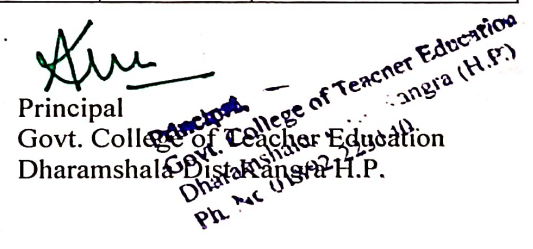 Principal
Govt. College of Teacher Education
Dharamshala Dist Kangra H.P.
Principal
Govt. College of Teacner Education
Dharamshala angra (H.P.)
Ph. Nc